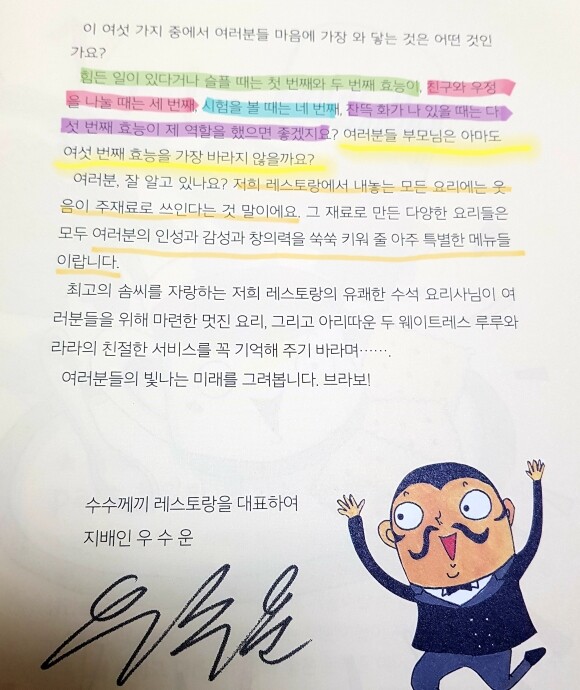 이 여섯 가지 중에서 여러분들 마음에 가장 와 닿는 것은 어떤 것인
가요?
힘든 일이 있다거나 슬플 때는 첫 번째와 두 번째 효능이, 친구와 우정
을 나눌 때는 세 번째, 시험을 볼 때는 네 번째, 잔뜩 화가 나 있을 때는 다
섯 번째 효능이 제 역할을 했으면 좋겠지요? 여러분들 부모님은 아마도
여섯 번째 효능을 가장 바라지 않을까요?
여러분, 잘 알고 있나요? 저희 레스토랑에서 내놓는 모든 요리에는 웃
음이 주재료로 쓰인다는 것 말이에요. 그 재료로 만든 다양한 요리들은
모두 여러분의 인성과 감성과 창의력을 쑥쑥 키워 줄 아주 특별한 메뉴들
이랍니다.
최고의 솜씨를 자랑하는 저희 레스토랑의 유쾌한 수석 요리사님이 여
러분들을 위해 마련한 멋진 요리, 그리고 아리따운 두 웨이트레스 루루와
라라의 친절한 서비스를 꼭 기억해 주기 바라며…….
여러분들의 빛나는 미래를 그려봅니다. 브라보!
수수께끼 레스토랑을 대표하여
지배인 우 수 운
우수운